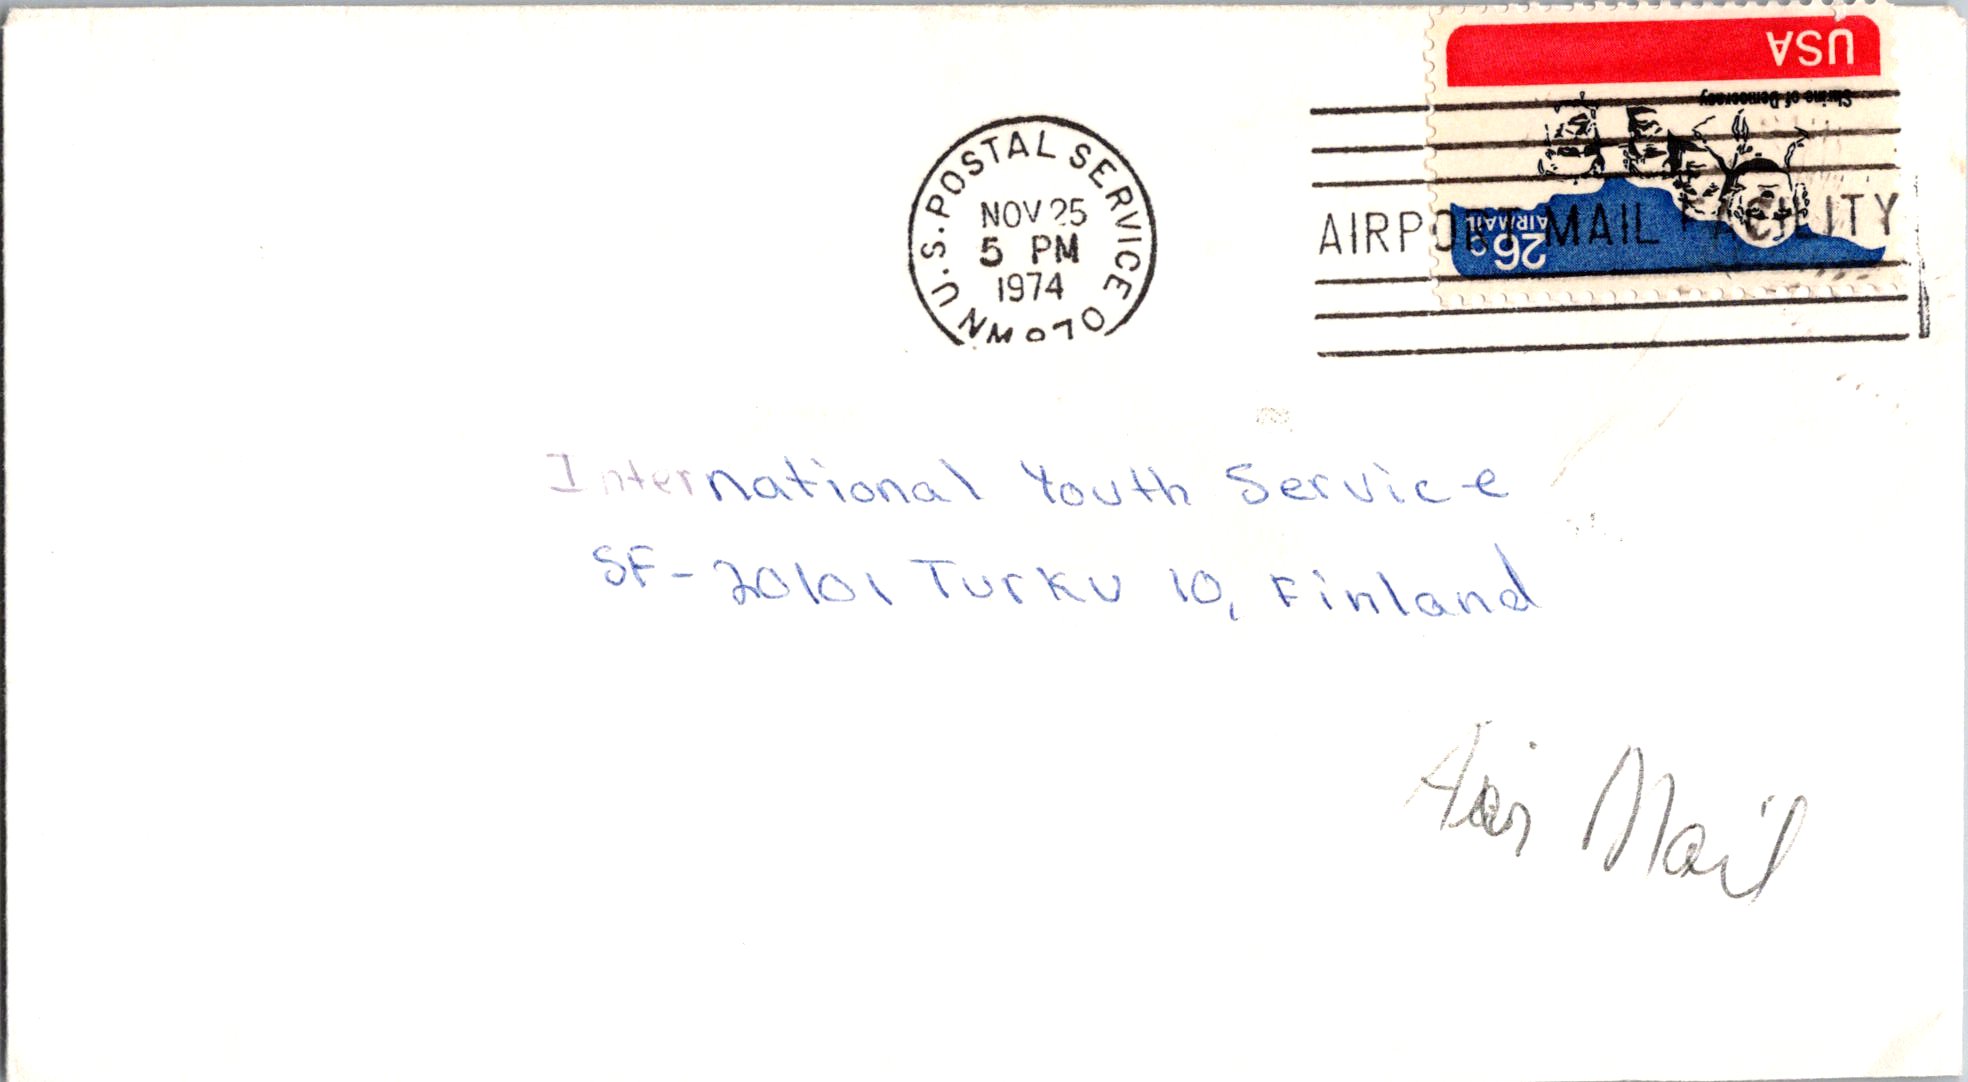 USA
Shrine of Democracy
AIRMAIL
26c
U.S. POSTAL SERVICE
NOV 25
5 PM
1974
AIRPORT MAIL FACILITY
International Youth Service
SF-20101 Turku 10, Finland
Air Mail